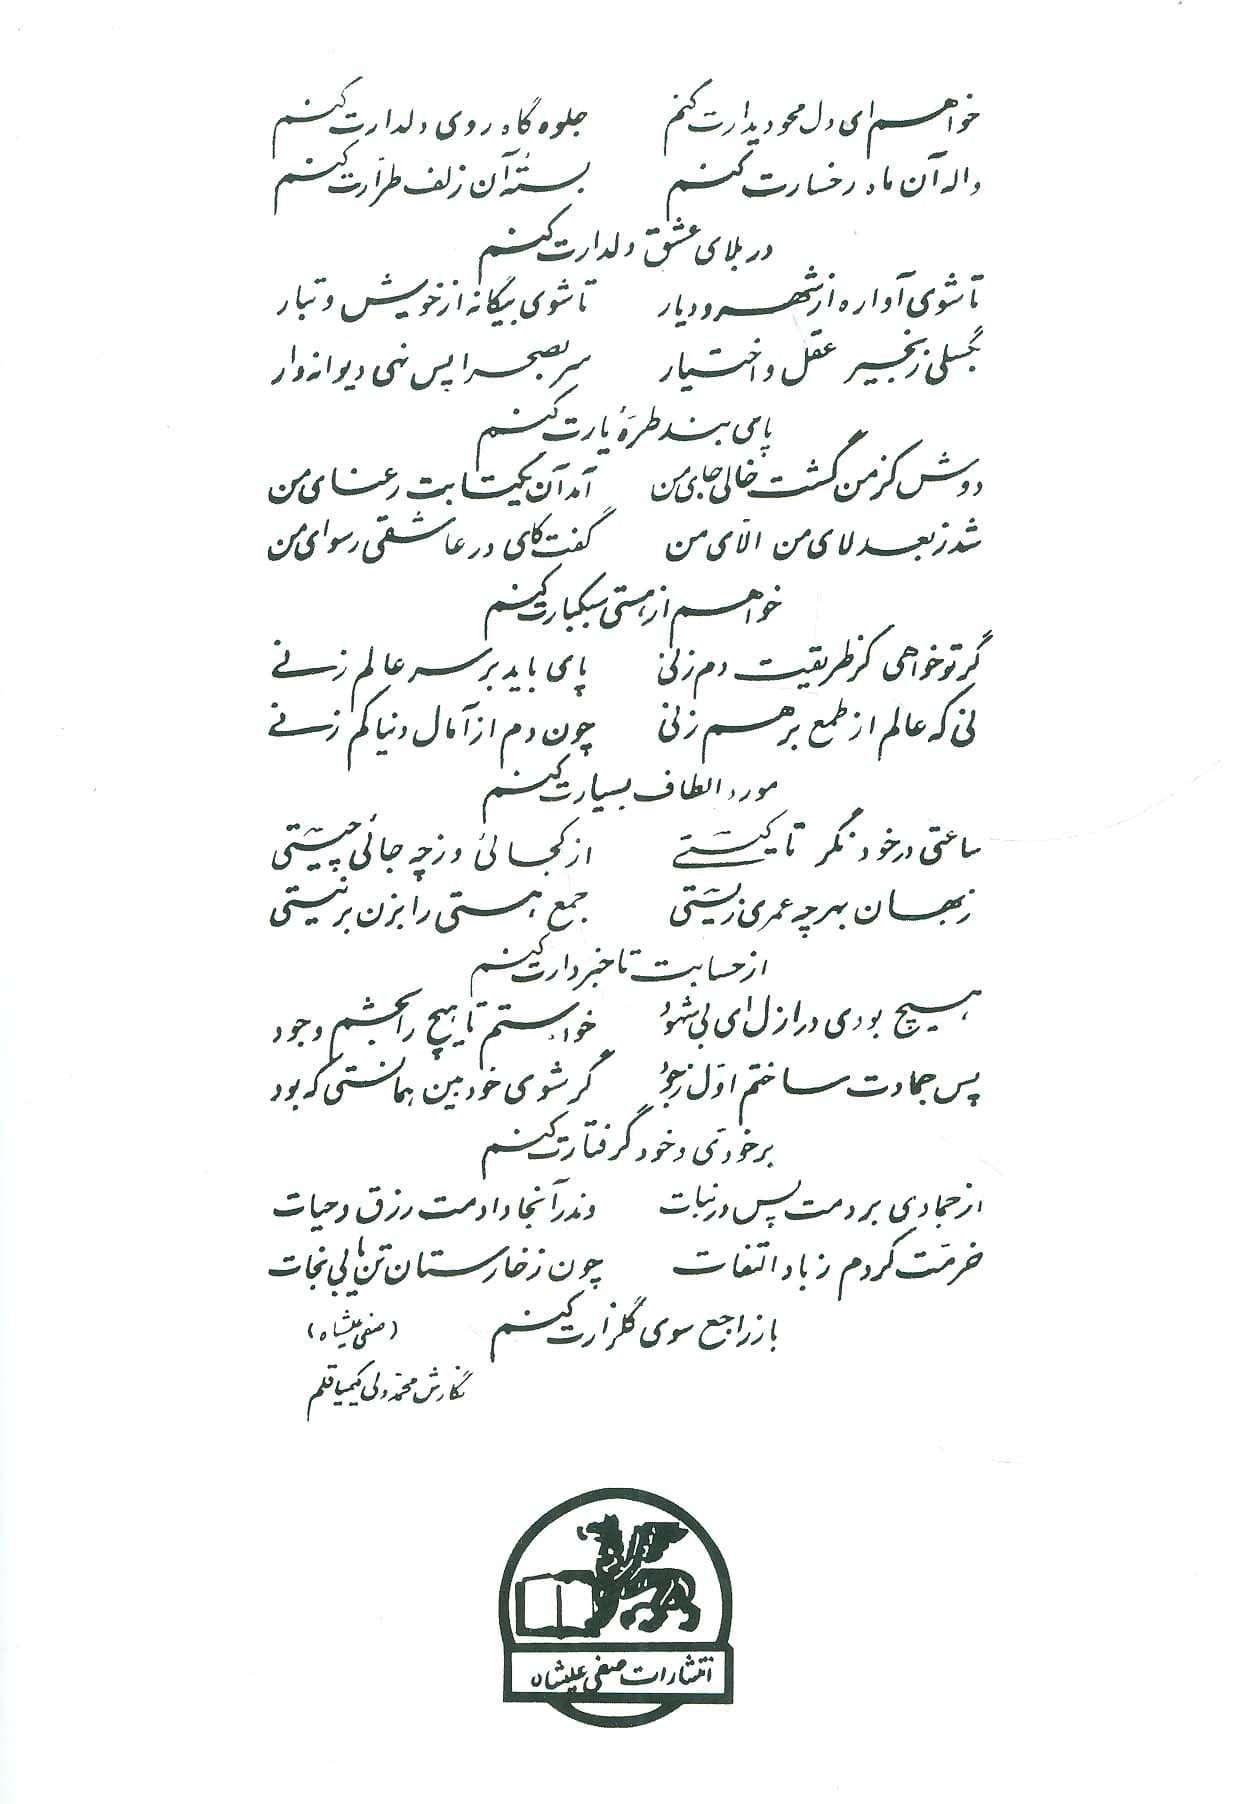 خواهم ای دل محو دیدارت کنم جلوه گاه روی دلدارت کنم
واله آن ماه رخسارت کنم بستهٔ آن زلف طرّارت کنم
در بلای عشق دلدارت کنم
تا شوی آواره از شهر و دیار تا شوی بیگانه از خویش و تبار
بگسلی زنجیر عقل و اختیار سر بصحرا پس نهی دیوانه وار
پای بند طرهٔ یارت کنم
دوش کز من گشت خالی جای من آمد آن یکتا بت رعنای من
شد ز بعد لای من الّای من گفت کای در عاشقی رسوای من
خواهم از هستی سبکبارت کنم
گر تو خواهی کز طریقت دم زنی پای باید بر سر عالم زنی
نی که عالم از طمع برهم زنی چون دم از آمال دنیا کم زنی
مورد الطاف بسیارت کنم
ساعتی در خود نگر تا کیستی از کجائی وز چه جائی چیستی
در جهان بهر چه عمری زیستی جمع هستی را بزن بر نیستی
از حسابت تا خبردارت کنم
هیچ بودی در ازل ای بی شهود خواستم تا هیچ را بخشم وجود
پس جمادت ساختم اوّل ز جود گر شوی خودبین همانستی که بود
بر خودی و خود گرفتارت کنم
از جمادی بردمت پس در نبات وندر آنجا دادمت رزق و حیات
خرمّت کردم ز باد التفات چون ز خارستان تن یابی نجات
باز راجع سوی گلزارت کنم (صفی علیشاه)
نگارش محمد ولی کیمیا قلم
انتشارات صفی علیشاه